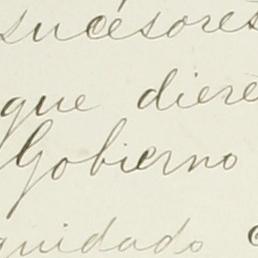 sucesores
que diere
Gobierno
quidado